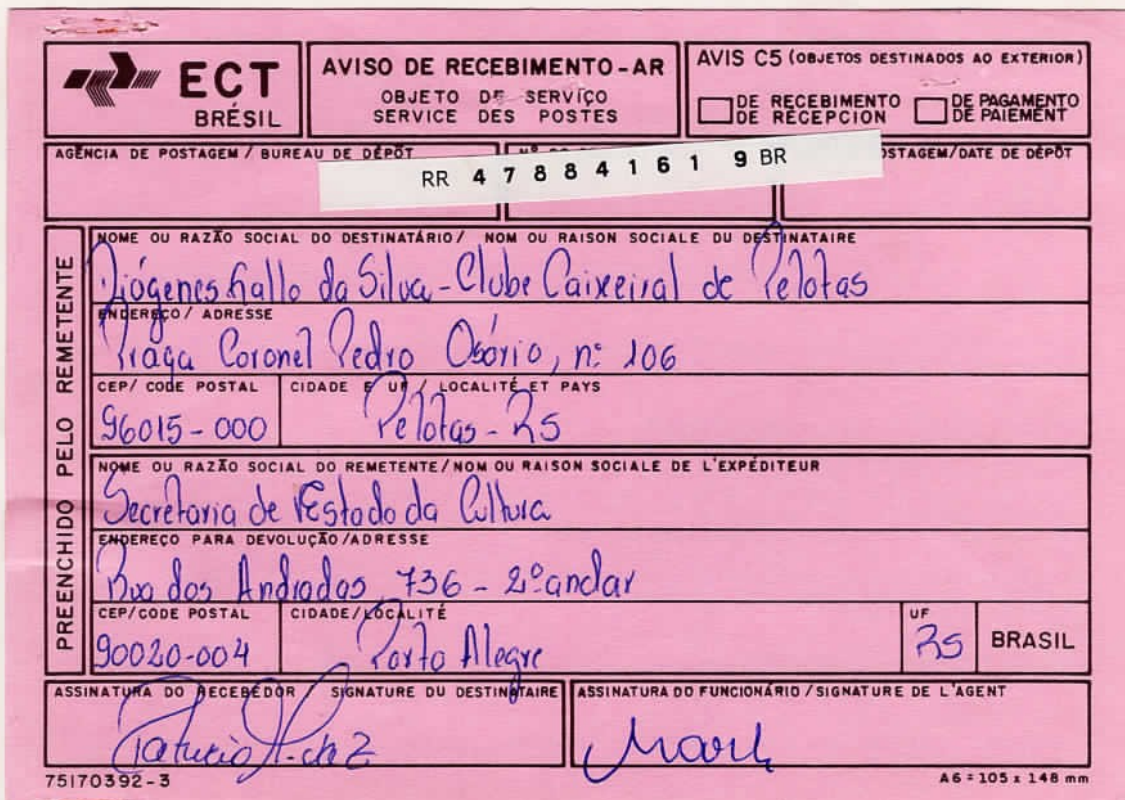 ECT
BRÉSIL
AVISO DE RECEBIMENTO - AR
OBJETO DE SERVIÇO
SERVICE DES POSTES
AVIS C5 (OBJETOS DESTINADOS AO EXTERIOR)
DE RECEBIMENTO
DE RÉCEPCION
DE PAGAMENTO
DE PAIEMENT
AGÊNCIA DE POSTAGEM / BUREAU DE DÉPÔT
OSTAGEM/DATE DE DÉPÔT
RR 47884161 9 BR
PREENCHIDO PELO REMETENTE
NOME OU RAZÃO SOCIAL DO DESTINATÁRIO / NOM OU RAISON SOCIALE DU DESTINATAIRE
Diógenes Gallo da Silva - Clube Caixeiral de Pelotas
ENDEREÇO / ADRESSE
Praça Coronel Pedro Osório, nº 106
CEP/ CODE POSTAL
CIDADE E UF / LOCALITÉ ET PAYS
96015-000
Pelotas - RS
NOME OU RAZÃO SOCIAL DO REMETENTE/NOM OU RAISON SOCIALE DE L'EXPÉDITEUR
Secretaria de Estado da Cultura
ENDEREÇO PARA DEVOLUÇÃO/ADRESSE
Rua dos Andradas, 736 - 2º andar
CEP/CODE POSTAL
CIDADE/LOCALITÉ
UF
90020-004
Porto Alegre
RS
BRASIL
ASSINATURA DO RECEBEDOR SIGNATURE DU DESTINATAIRE
ASSINATURA DO FUNCIONÁRIO / SIGNATURE DE L'AGENT
75170392-3
A6 = 105 x 148 mm